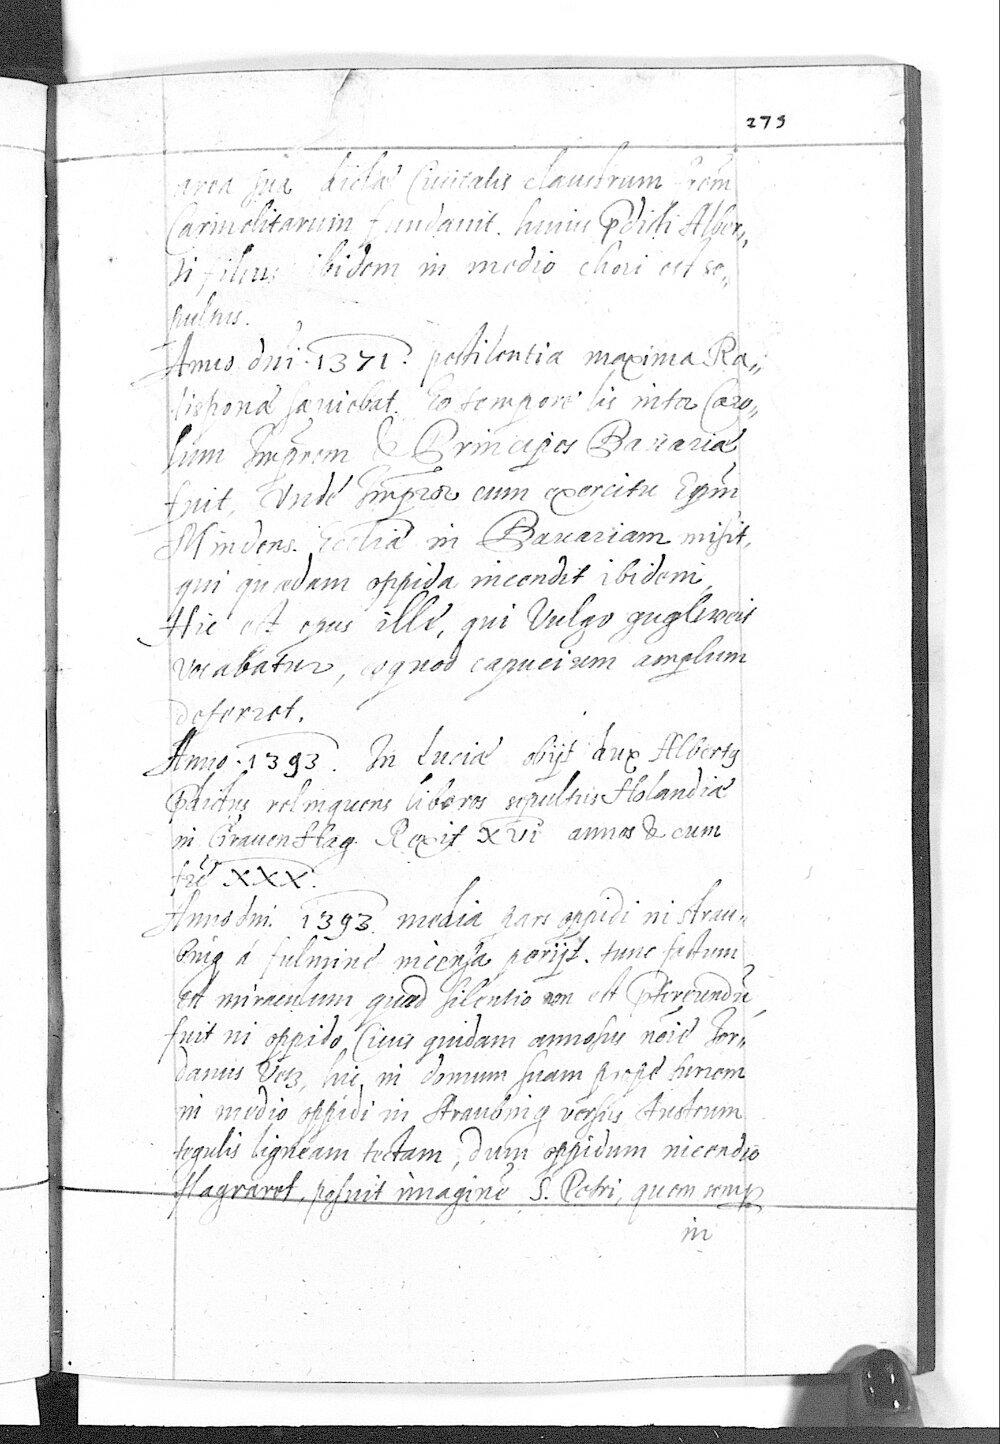 275
area sua dictae Civitatis claustrum frem
Carmelitarum fundavit. huius pdicti Alber„
ti filius ibidem in medio chori est se„
pultus.
Anno dni 1371. pestilentia maxima Ra„
tisponae saviebat. Eo tempore lis inter Caro„
lum Imprem & Principes Bavariae
fuit, Unde Impror cum exercitu Epm
Mindens. Ecclia in Bavariam misit,
qui quadam oppida incendit ibidem,
Hic est epus ille, qui Vulgo gugleweit
vocabatur, eo quod capucium amplum
deferret.
Anno 1393. In Lucia obijt dux Albertg
pdictus relinquens liberos sepultus Holandia
in Gravenhag. Rexit XVI annos & cum
fre XXX.
Anno dni. 1393. media pars oppidi in strau„
bing a fulmine incensa perijt. tunc factum
est miraculum quod silentio non est ptereundu,
fuit in oppido Civis quidam annosus noie Jor„
danus Vetz, hic in domum suam prope turrem
in medio oppidi in Straubing versus Austrum
tegulis ligneam tectam, dum oppidum incendio
flagraret, posuit imagine S. Petri, quem semp
in